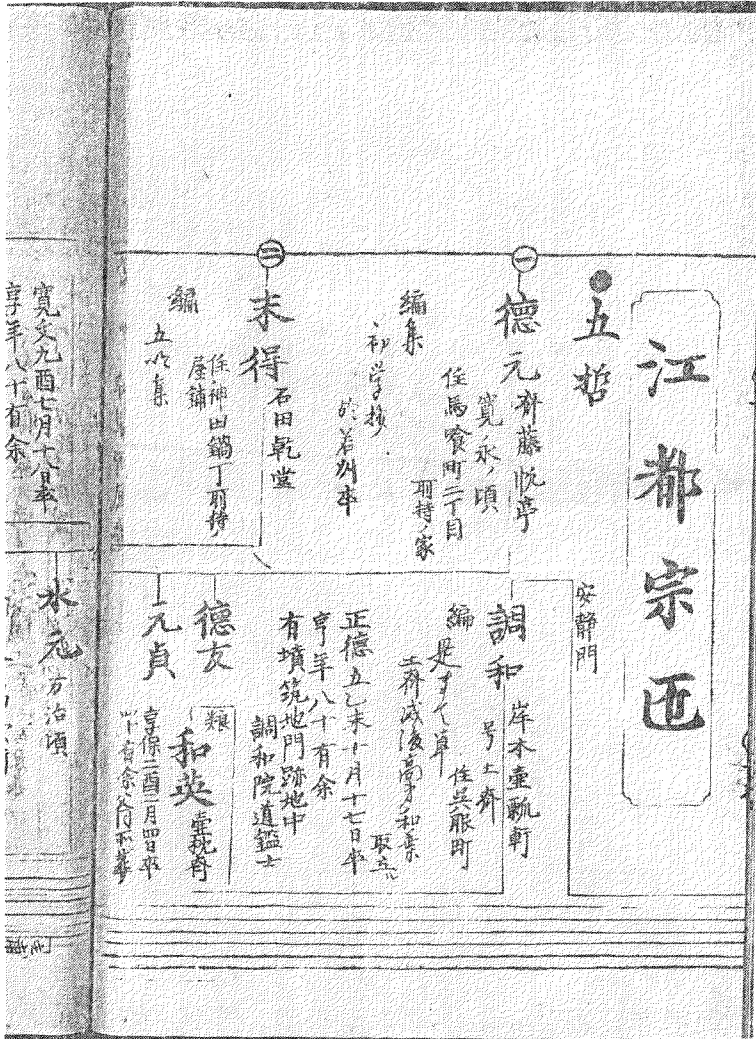 江都宗匠
五哲
一
徳元 斉藤帆亭
寛永ノ頃
住馬喰町二丁目
羽持ノ家
編集
初学抄
於若州卒
二
末得 石田乾堂
住神田鍋丁羽持ノ
屋鋪
編
五吹集
安静門
調和 岸本壷瓢軒
号土斎
住呉服町
編
是すて草
土斎滅後高 和集
取立
正徳五乙未十月十七日卒
享年八十有余
有墳筑地門跡地中
調和院道鑑士
徳友
元貞
類
和英 壷瓢斉
享保二酉二月四日卒
寛文九酉七月十八日卒
享年八十有余
水元 万治頃